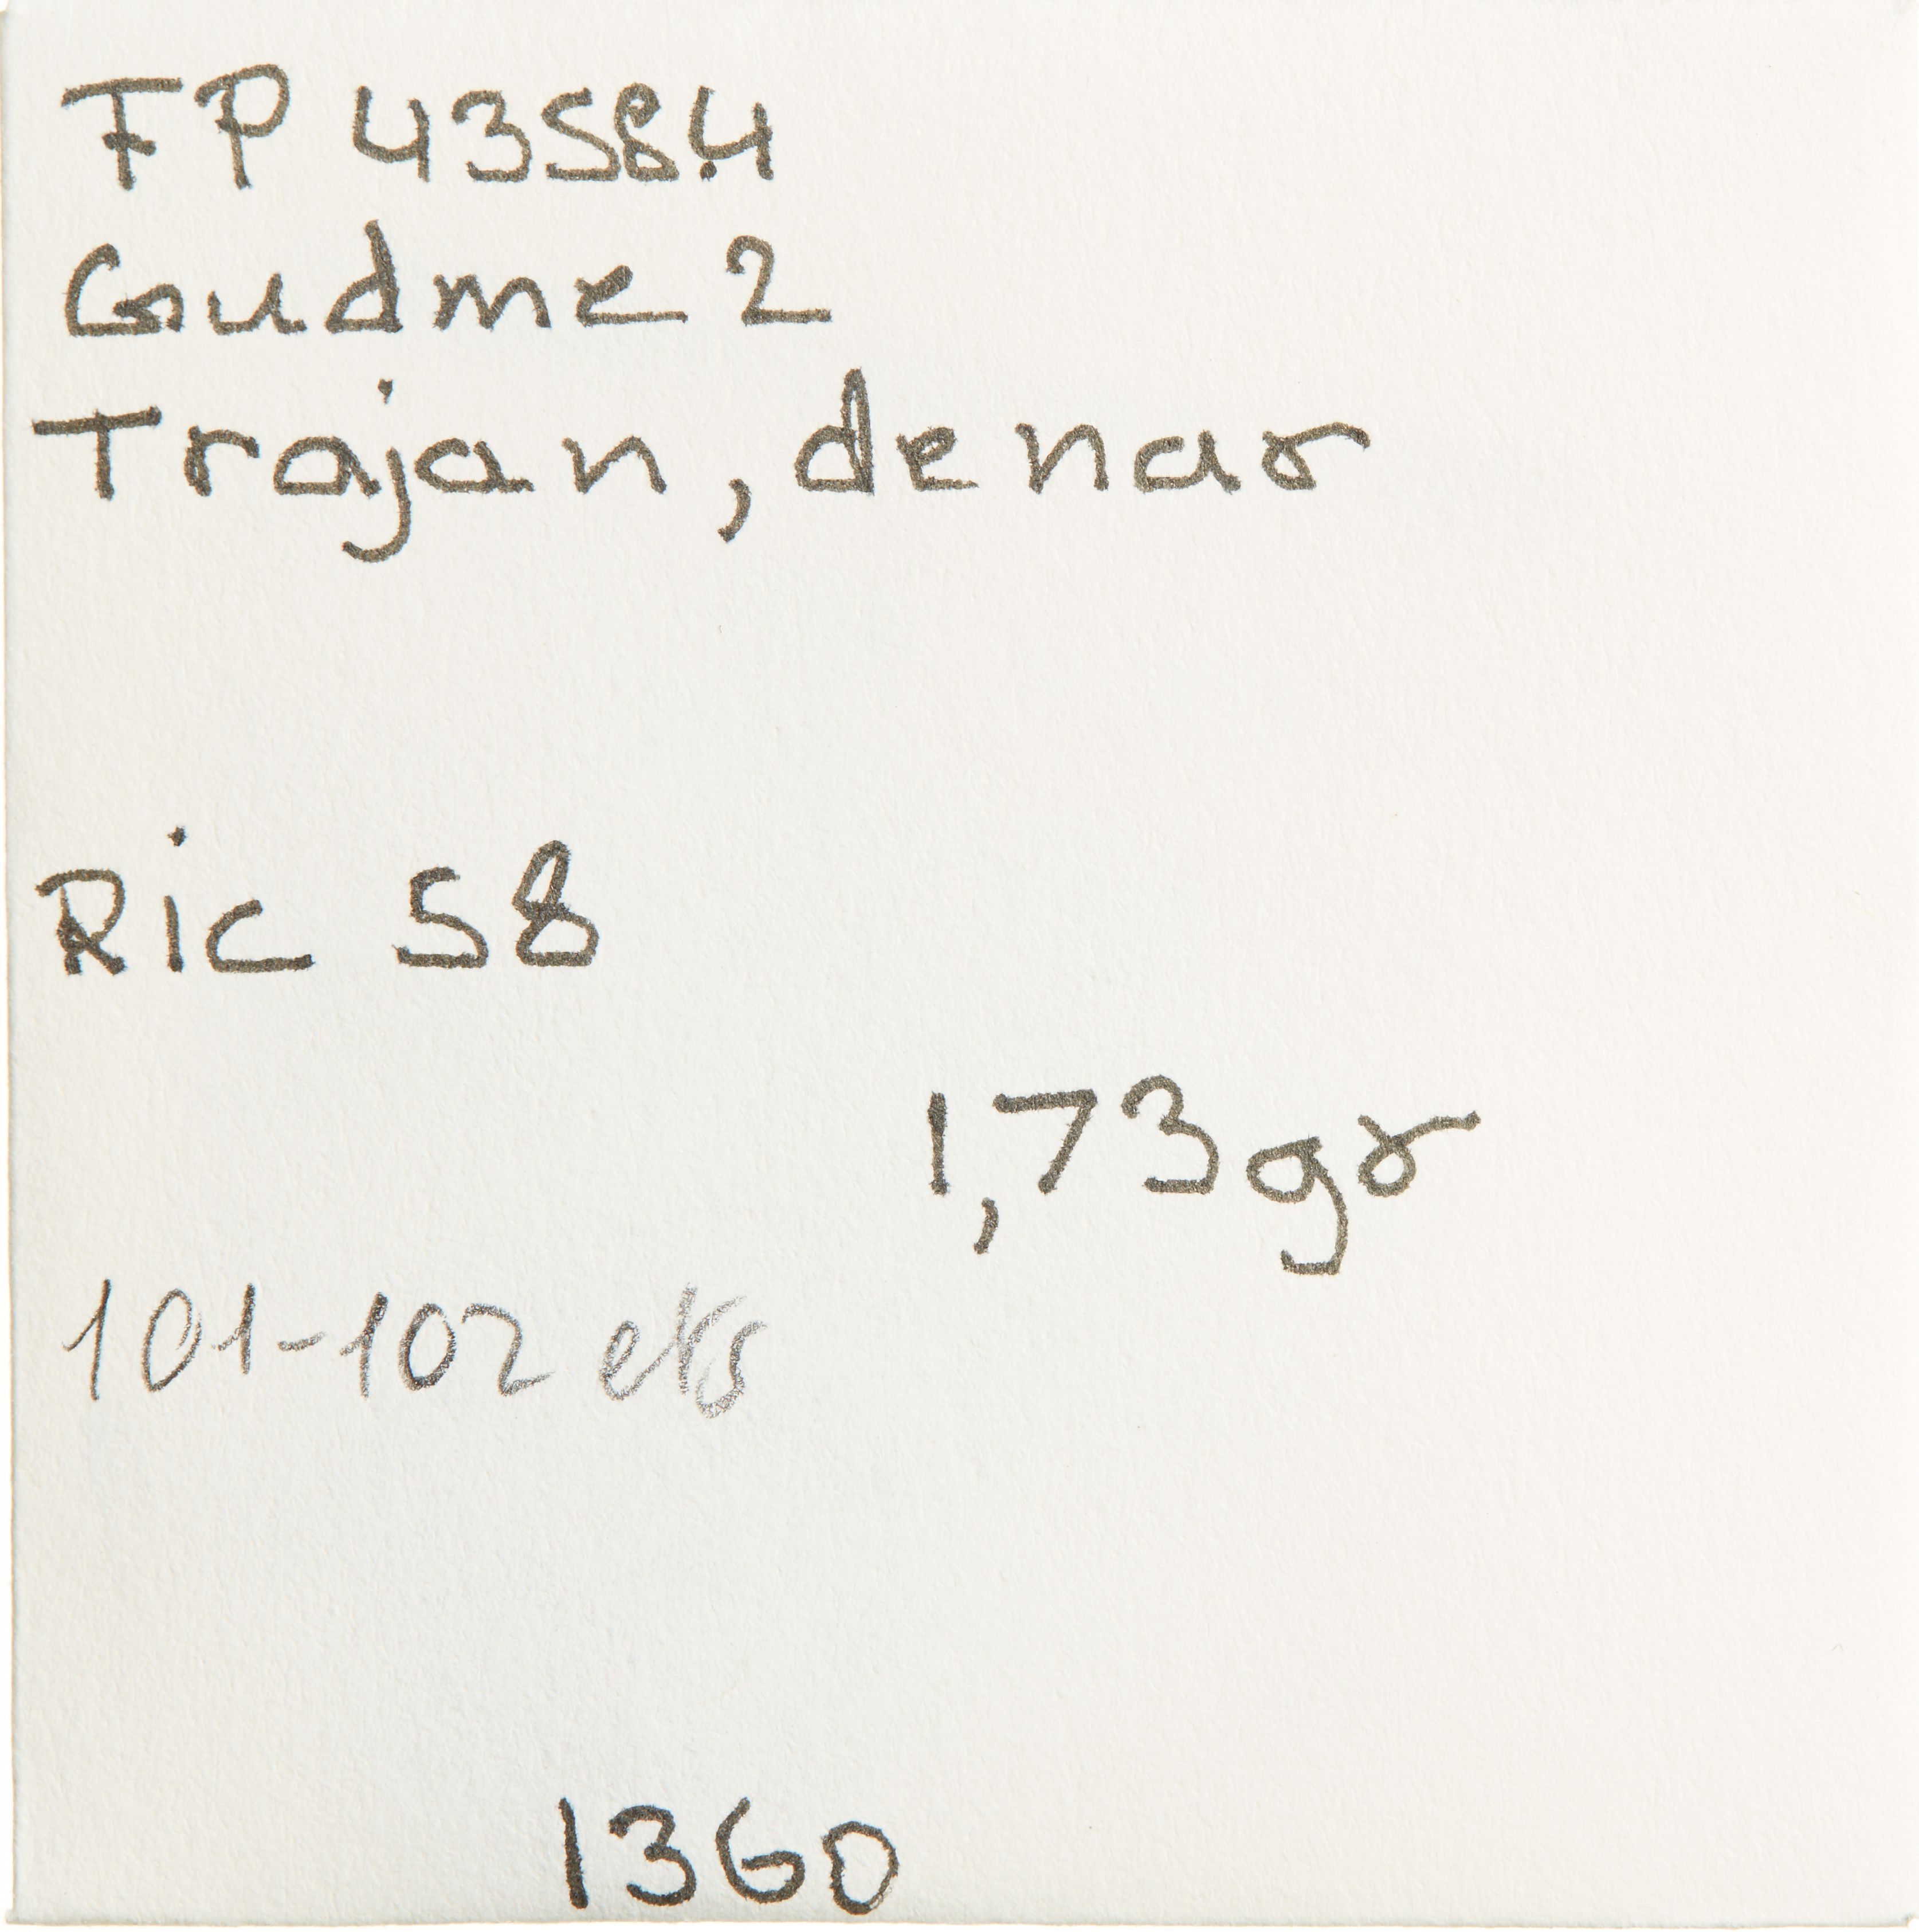 FP 4358.4
Gudme 2
Trajan, denar
Ric 58
1,73gr
101-102
1360